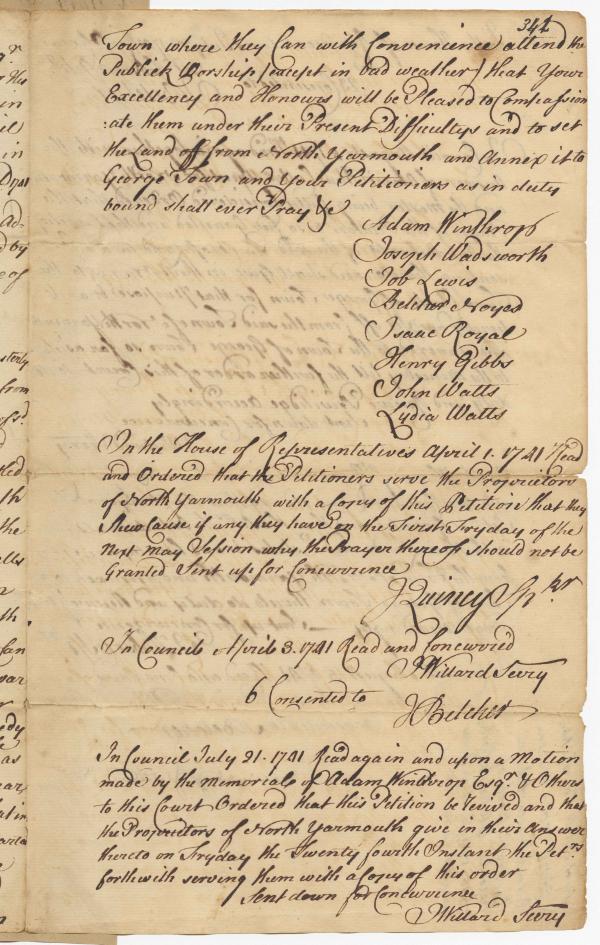 341
Town where they Can with Convenience attend the
Publick Worship (except in bad weather) that Your
Excellency and Honours will be Pleased to Compassion
:ate them under their Present Difficultys and to set
the Land off from North Yarmouth and Annex it to
George Town and Your Petitioners as in duty
bound shall ever Pray &c
Adam Winthrop
Joseph Wadsworth
Job Lewis
Belcher Noyes
Isaac Royal
Henry Gibbs
John Watts
Lydia Watts
In the House of Representatives April 1. 1741 Read
and Ordered that the Petitioners serve the Proprietors
of North Yarmouth with a Copy of this Petition that they
Shew Cause if any they have on the First Fryday of the
Next May Session why the Prayer thereof should not be
Granted Sent up for Concurrence
J Quincy Spkr
In Council April 3. 1741 Read and Concurred
J Willard Secry
6 Consented to
J Belcher
In Council July 21. 1741 Read again and upon a Motion
made by the Memorial of Adam Winthrop Esqr. & Others
to this Court Ordered that this Petition be revived and that
the Proprietors of North Yarmouth give in their Answer
thereto on Fryday the Twenty fourth Instant the Petrs
forthwith serving them with a Copy of this order
Sent down for Concurrence
J Willard Secry